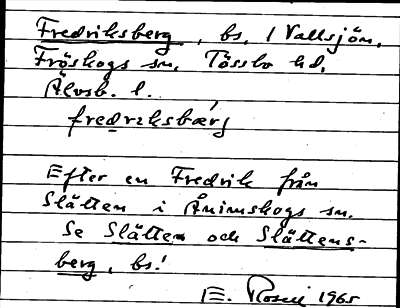 Fredriksberg, bs. i Vallsjön,
Fröskogs sn. Tössbo hd.
Älvsb. l.
fredriksbærj
Efter en Fredrik från
Slätten i Ånimskogs sn.
Se Slätten och Slättens-
berg, bs!
E. Rosell 1965